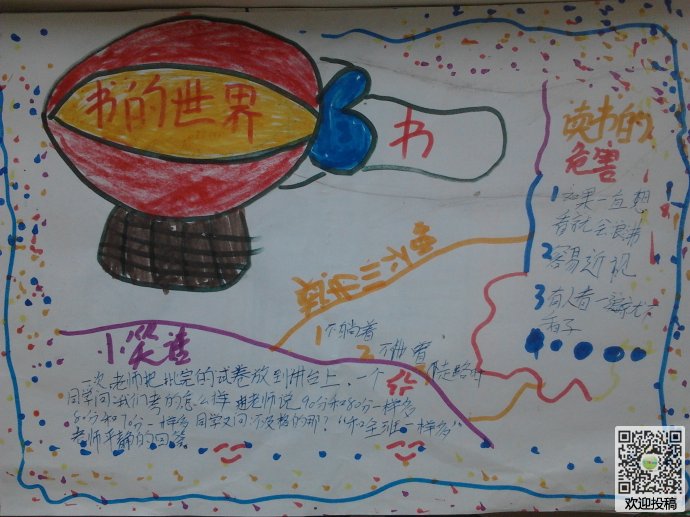 书的世界
书
读书的
危害
1 如果一直想
看就会
2 容易近视
3 有人看一
小笑话
1 不躺着
2 不
一次,老师把批完的试卷放到讲台上,一个
同学问:我们考的怎么样,老师说90分和80分一样多
80分和70分一样多 同学又问:不及格的那?“和全班一样多”
老师平静的回答
欢迎投稿